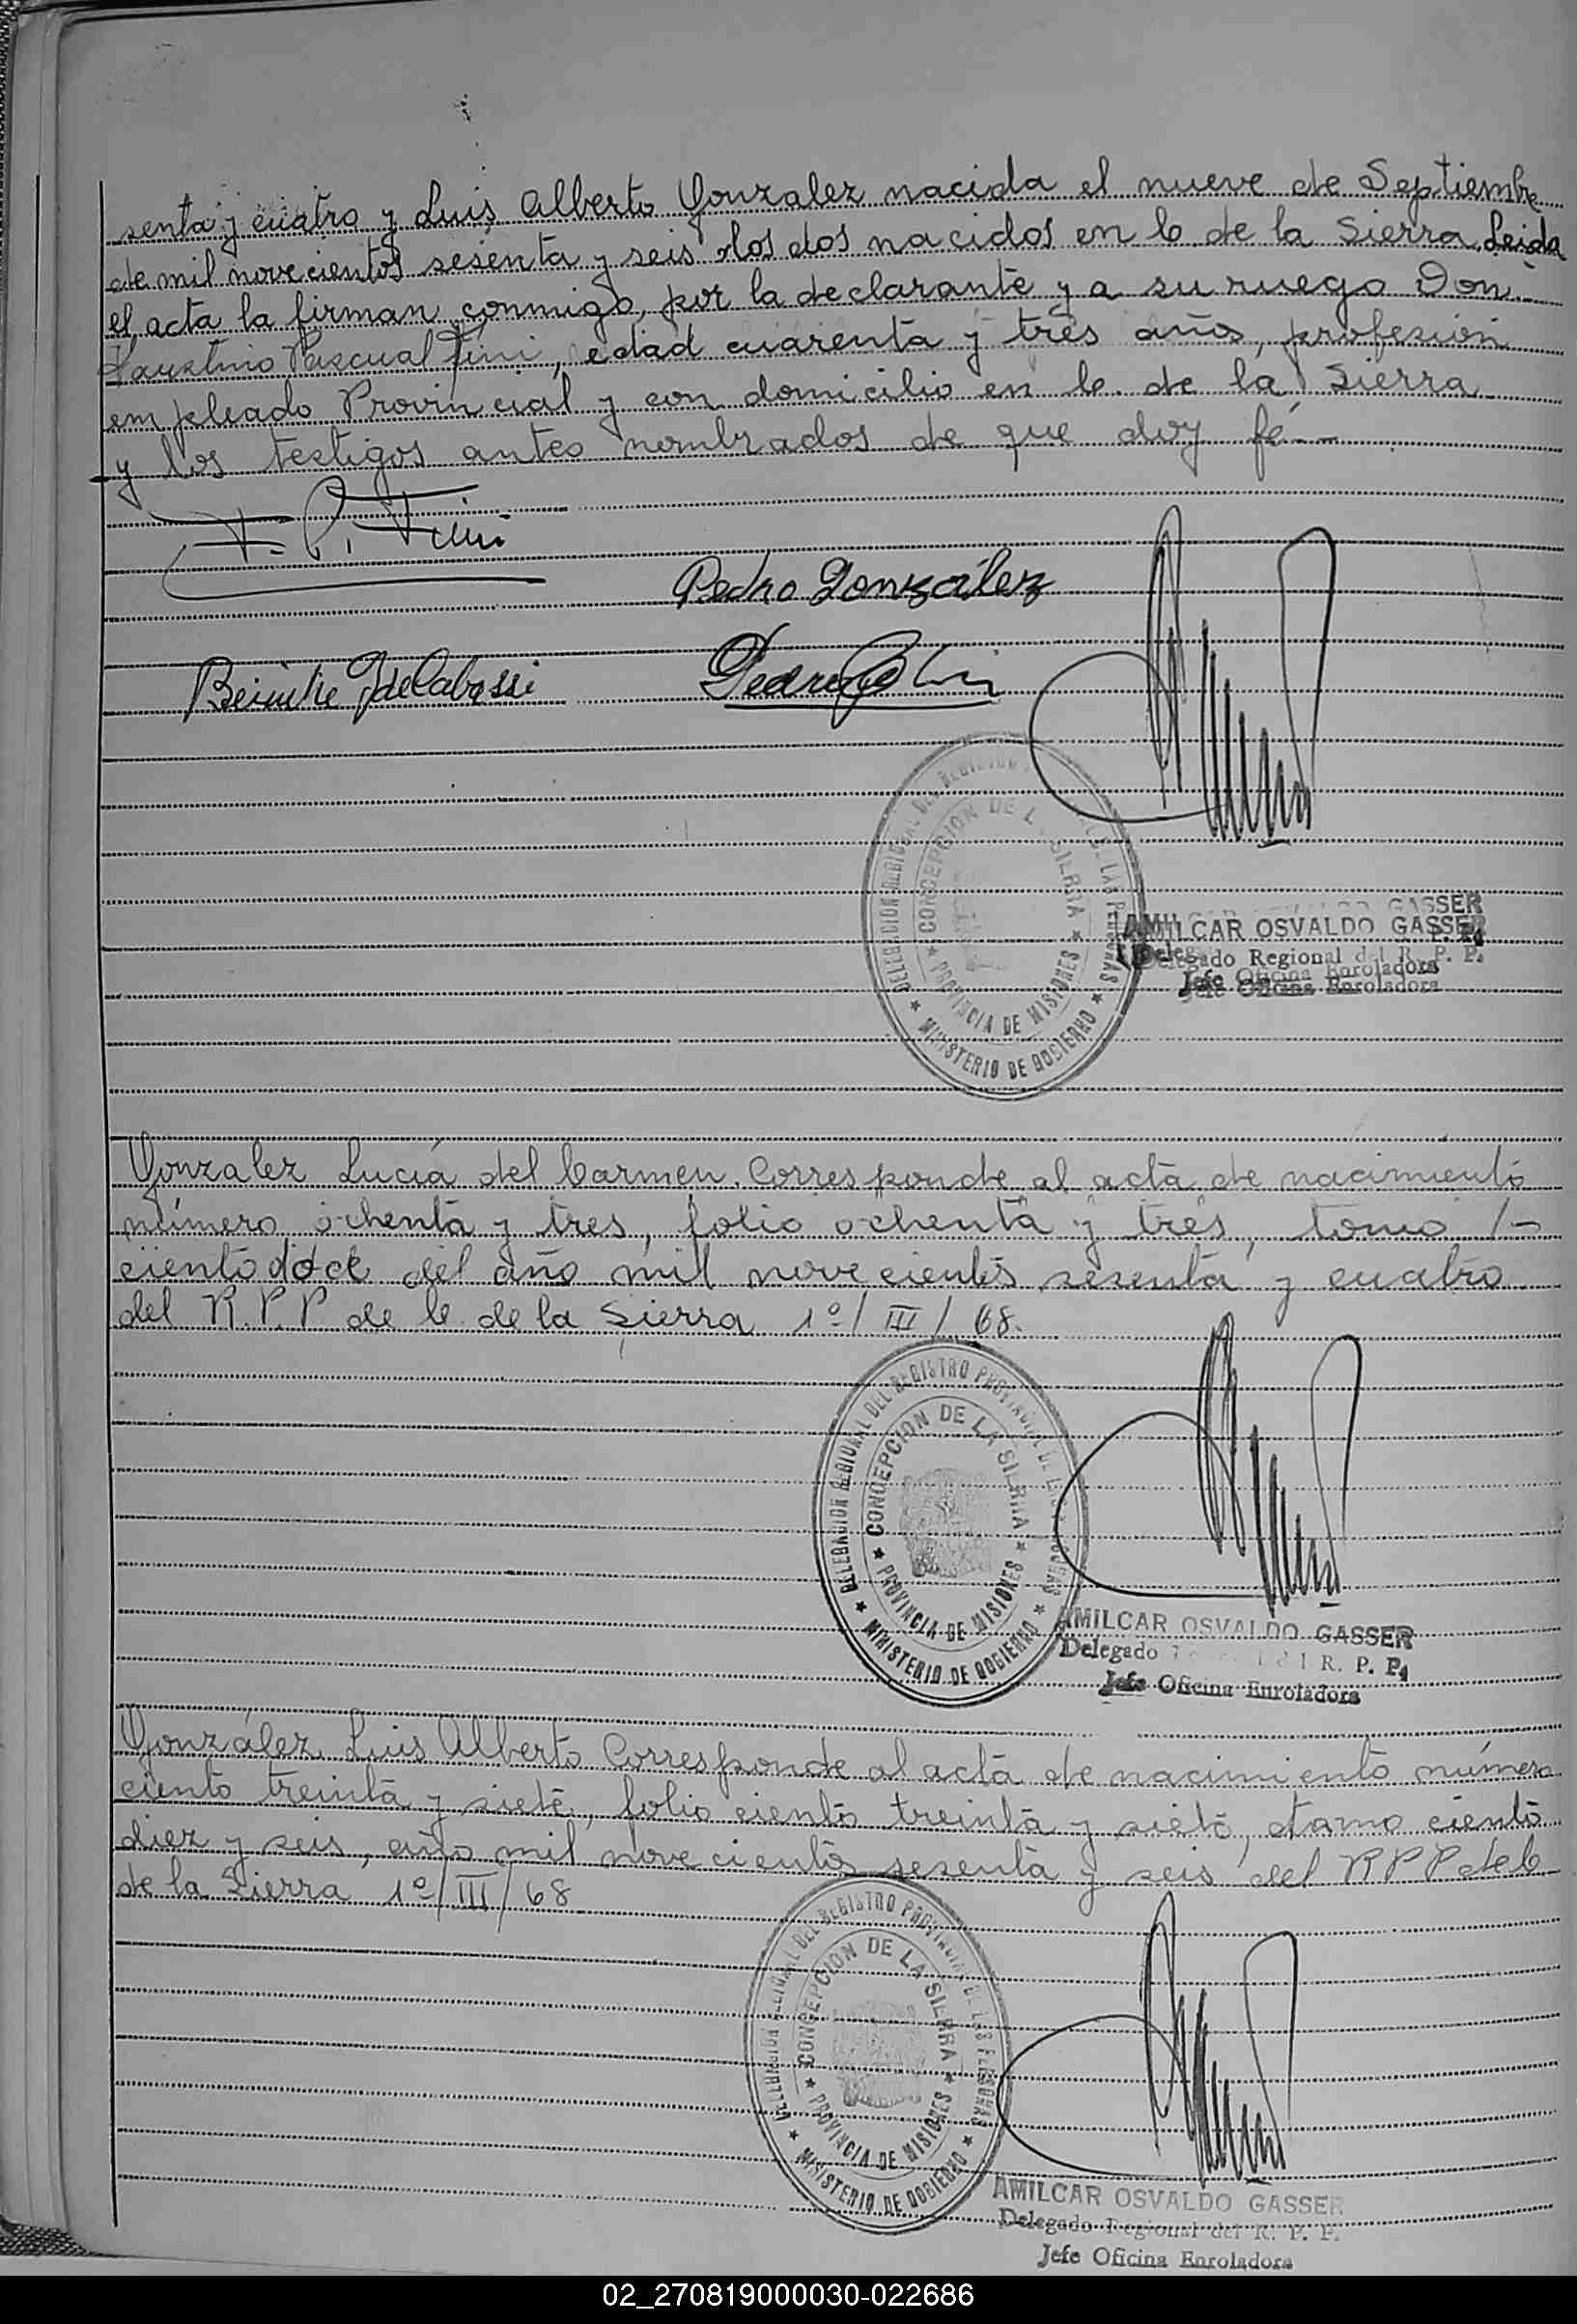 senta y cuatro y Luis Alberto Gonzalez nacida el nueve de Septiembre
de mil novecientos sesenta y seis los dos nacidos en C. de la Sierra. Leida
el acta la firman conmigo, por la declarante y a su ruego Don.-
Faustino Pascual Fini, edad cuarenta y tres años, profesión
empleado Provincial y con domicilio en C. de la Sierra
y los testigos antes nombrados de que doy fé.-
F. P. Fini
Pedro González
Pedro
DELEGACION REGIONAL DEL REGISTRO DE LAS PERSONAS
CONCEPCION DE L SIERRA
PROVINCIA DE MISIONES
MINISTERIO DE GOBIERNO
AMILCAR OSVALDO GASSER
Delegado Regional del R. P. P.
Jefe Oficina Enroladora
Gonzalez Lucía del Carmen. Corresponde al acta de nacimiento
número ochenta y tres, folio ochenta y tres, tomo 1-
ciento doce del año mil novecientos sesenta y cuatro
del R.P.P de C. de la Sierra 1º/III/68.
DELEGACION REGIONAL DEL REGISTRO PROVINCIAL DE LAS PERSONAS
CONCEPCION DE LA SIERRA
PROVINCIA DE MISIONES
MINISTERIO DE GOBIERNO
AMILCAR OSVALDO GASSER
Delegado R. P. P.
Jefe Oficina Enroladora
González Luis Alberto Corresponde al acta de nacimiento número
ciento treinta y siete, folio ciento treinta y siete, tomo ciento
diez y seis, año mil novecientos sesenta y seis del RPP de C
de la Sierra 1º/III/68
DELEGACION REGIONAL DEL REGISTRO PROVINCIAL DE LAS PERSONAS
CONCEPCION DE LA SIERRA
PROVINCIA DE MISIONES
MINISTERIO DE GOBIERNO
AMILCAR OSVALDO GASSER
Delegado Regional del R. P. P.
Jefe Oficina Enroladora
02_270819000030-022686